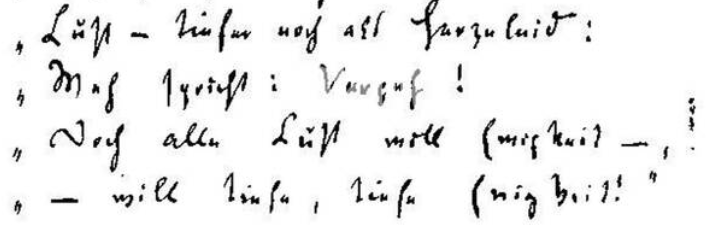 „Lust – tiefer noch als Herzeleid:
„Weh spricht: Vergeh!
„Doch alle Lust will Ewigkeit –, !
„– will tiefe, tiefe Ewigkeit!"